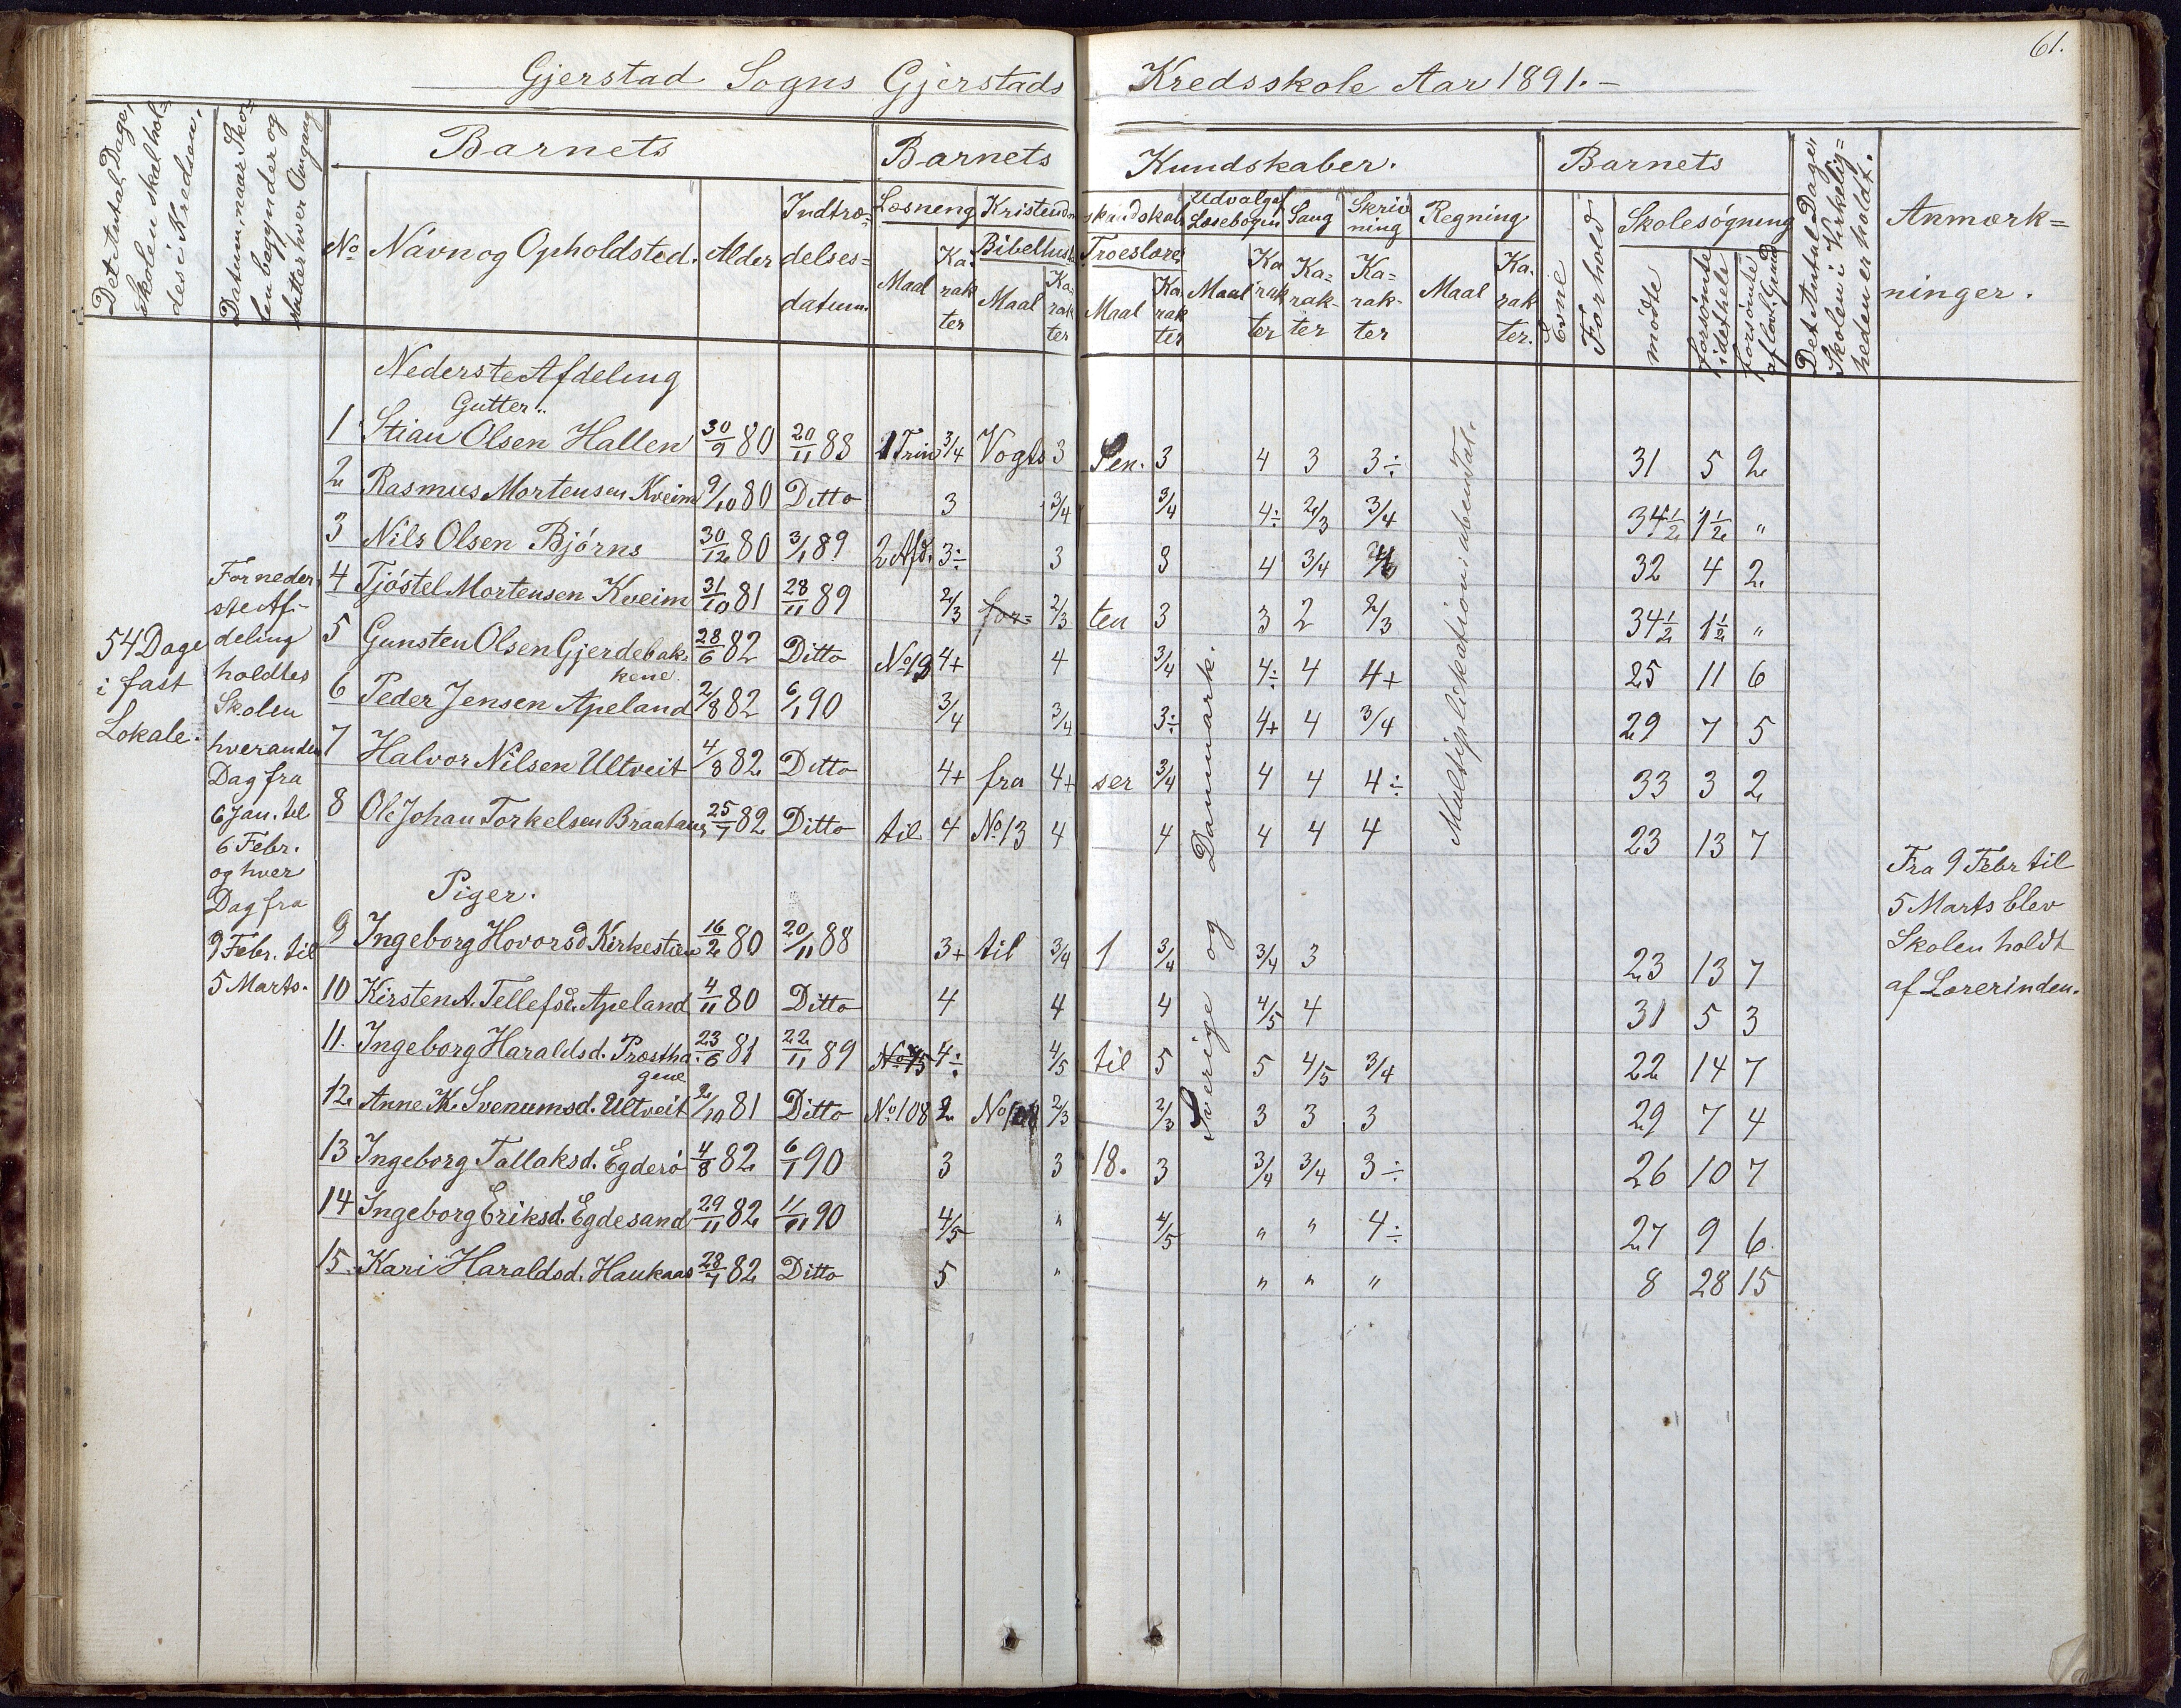 61.
Gjerstad Sogns Gjerstads Kredsskole Aar 1891.-
Det Antal Dage, Skolen skal holdes i Kredsen.
Datum, naar Skolen begynder og slutter hver Omgang
Barnets
Barnets
Kundskaber.
Barnets
Det Antal Dage, Skolen i Virkeligheden er holdt.
Anmærkninger.
No Navn og Opholdsted. Alder Indtrædelsesdatum.
Læsning Kristendomskundskab Udvalg af Læsebogen Sang Skrivning Regning
Bibelhist. Troeslære
Maal Karakter Maal Karakter Maal Karakter Maal Karakter Karakter Karakter Maal Karakter.
Evne Forhold Skolesøgning
mødte forsømte idethele forsømte af lovl. Grund
Nederste Afdeling
Gutter.
1 Stian Olsen Hallen 30/9 80 20/11 88 1 Trin 3/4 Vogts 3 Pen. 3 4 3 3÷ 31 5 2
2 Rasmus Mortensen Kveim 9/10 80 Ditto 3 3/4 3/4 4÷ 2/3 3/4 34½ 1½ "
3 Nils Olsen Bjørns 30/12 80 3/1 89 2 Afd. 3÷ 3 3 4 3/4 32 4 2
4 Tjøstel Mortensen Kveim 31/10 81 28/11 89 2/3 for= 2/3 ten 3 3 2 2/3 34½ 1½ "
5 Gunsten Olsen Gjerdebakkene. 28/6 82 Ditto No 19 4+ 4 3/4 4÷ 4 4+ 25 11 6
6 Peder Jensen Apeland 2/8 82 6/1 90 3/4 3/4 3÷ 4+ 4 3/4 29 7 5
7 Halvor Nilsen Ultveit 4/8 82 Ditto 4+ fra 4+ ser 3/4 4 4 4÷ 33 3 2
8 Ole Johan Torkelsen Braatane 25/7 82 Ditto til 4 No 13 4 4 4 4 4 23 13 7
Piger.
9 Ingeborg Hovorsd. Kirkestien 16/2 80 20/11 88 3+ til 3/4 1 3/4 3/4 3 23 13 7
10 Kirsten A. Tellefsd. Apeland 4/11 80 Ditto 4 4 4 4/5 4 31 5 3
11. Ingeborg Haraldsd. Prosthagene 23/6 81 22/11 89 No 45 4÷ 4/5 til 5 5 4/5 3/4 22 14 7
12. Anne K. Svenumsd. Ultveit 2/10 81 Ditto No 108 2 No 108 2/3 2/3 3 3 3 29 7 4
13 Ingeborg Tallaksd. Egderø 4/8 82 6/1 90 3 3 18. 3 3/4 3/4 3÷ 26 10 7
14 Ingeborg Eriksd. Egdesand 29/11 82 11/11 90 4/5 " 4/5 " " 4÷ 27 9 6
15. Kari Haraldsd. Haukaas 28/7 82 Ditto 5 " " " " 8 28 15
54 Dage
i fast
Lokale.
For neder
ste Af-
deling
holdtes
Skolen
hveranden
Dag fra
6 Jan. til
6 Febr.
og hver
Dag fra
9 Febr. til
5 Marts.
Sverige og Danmark.
Multiplikation i ubenævnte Tal.
Fra 9 Febr til
5 Marts blev
Skolen holdt
af Lærerinden.